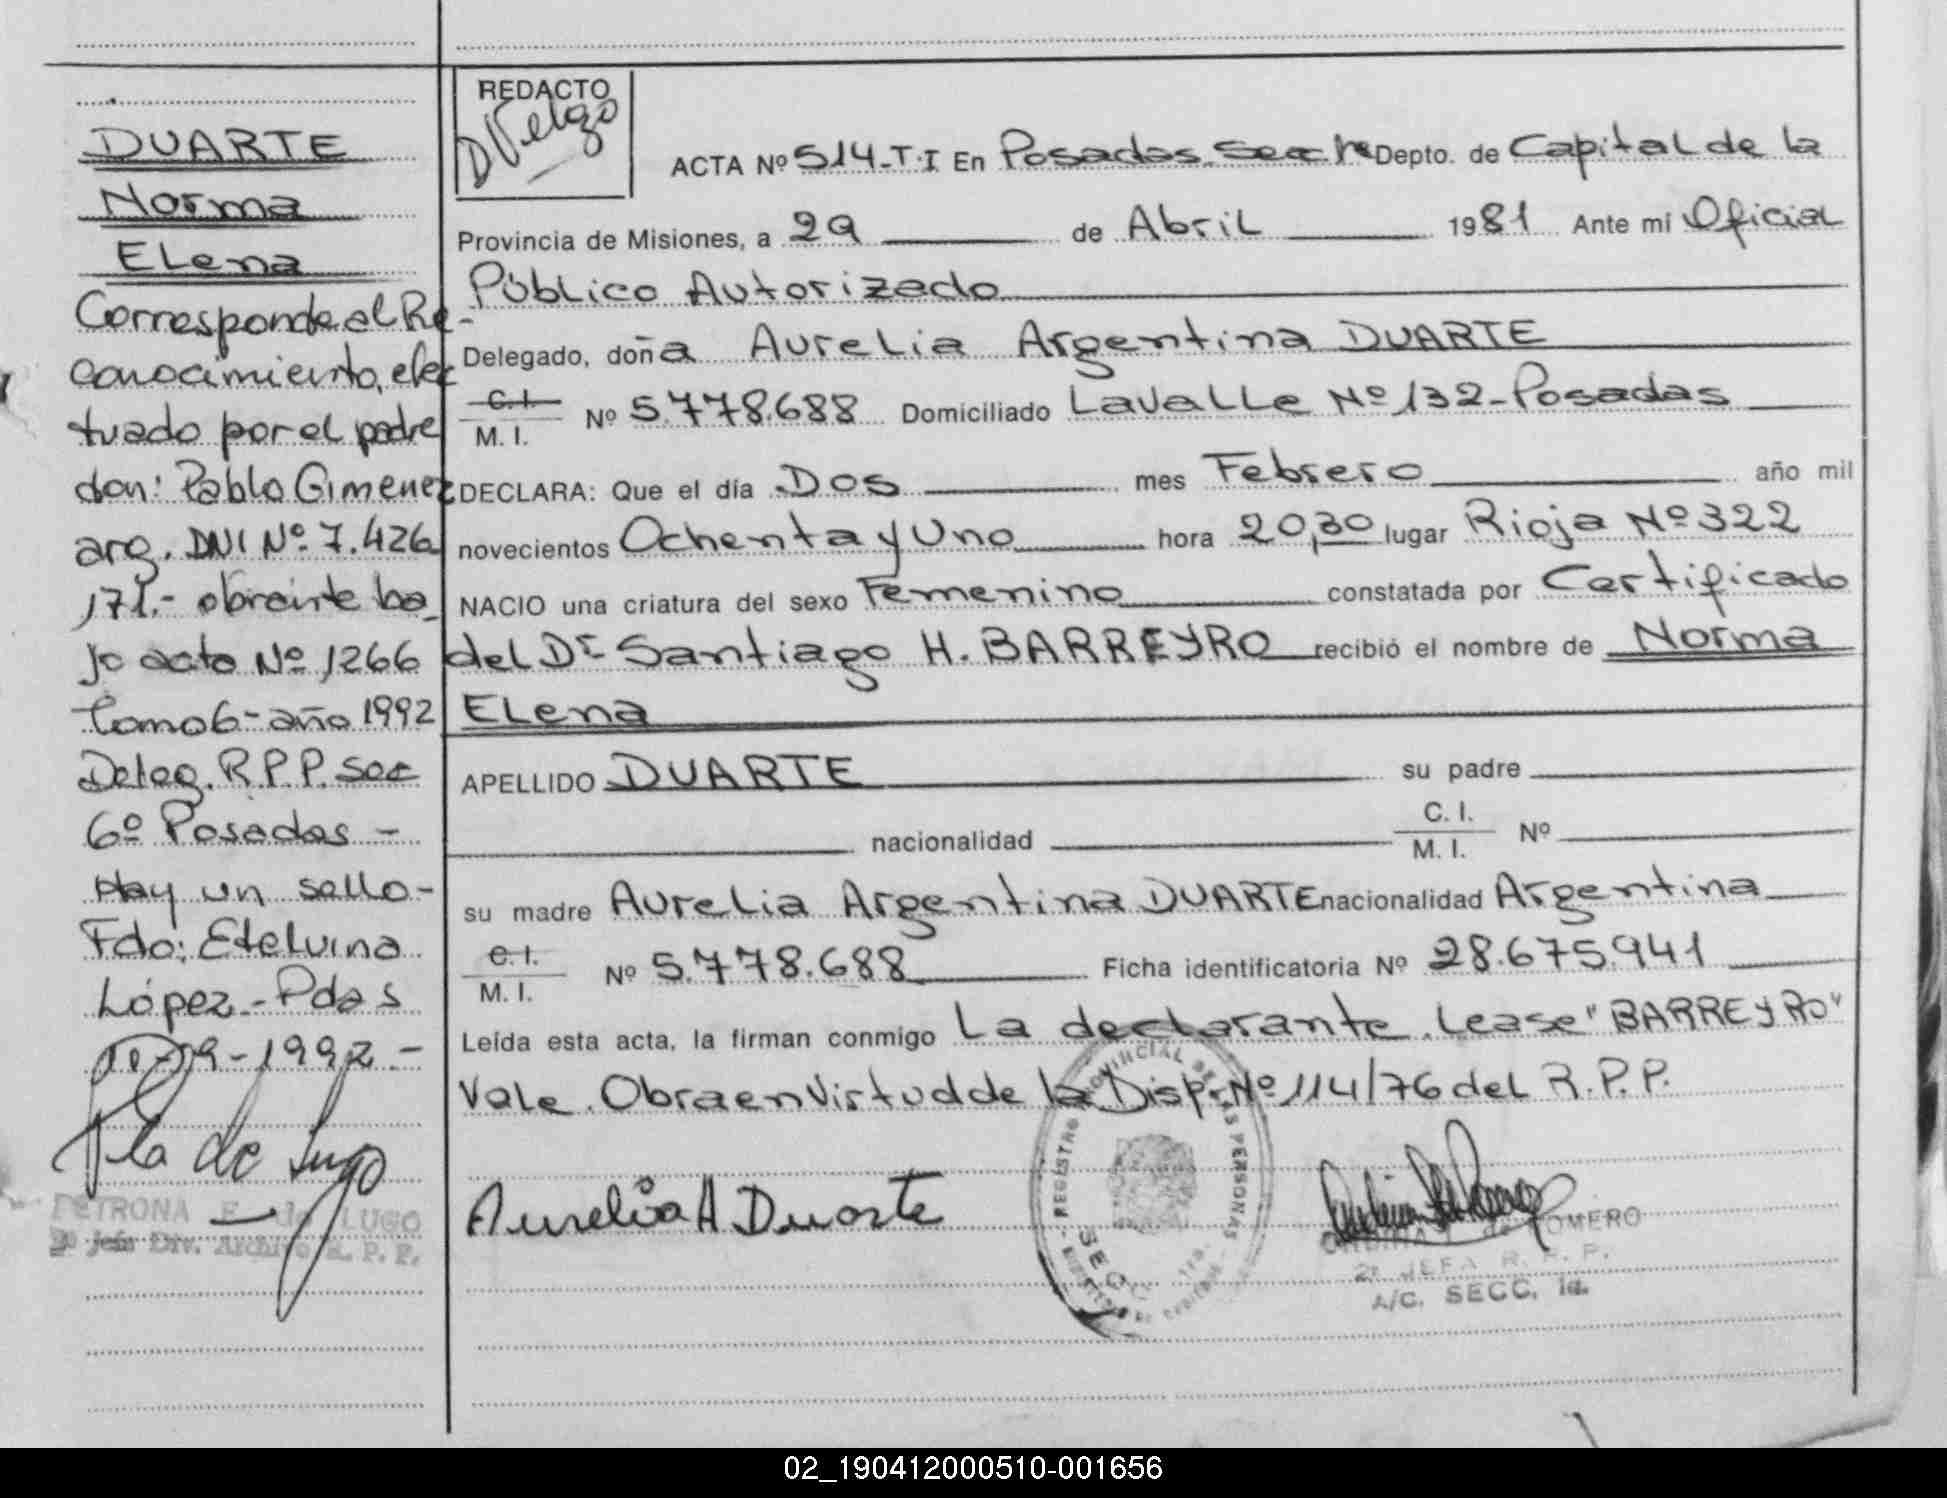 DUARTE
Norma
ELena
Corresponde al Re-
conocimiento, efec
tuado por el padre
don: Pablo Gimenez
arg. DNI Nº 7.426
171.- obrante ba_
jo acta Nº 1266
tomo 6 - año 1992
Deleg. R.P.P. Sec
6º Posadas -
Hay un sello -
Fdo: Etelvina
López - Pdas
-09-1992. -
Pla de Lugo
PETRONA E. de LUGO
Jefa Div. Archivo R. P. P.
REDACTO
ACTA Nº 514-T.I En Posadas Secc 1ª Depto. de Capital de la
Provincia de Misiones, a 29 de Abril 1981 Ante mi Oficial
Público Autorizado
Delegado, doña Aurelia Argentina DUARTE
C.I. M. I. Nº 5.778.688 Domiciliado Lavalle Nº 132 - Posadas
DECLARA: Que el día Dos mes Febrero año mil
novecientos Ochenta y Uno hora 20,30 lugar Rioja Nº 322
NACIO una criatura del sexo Femenino constatada por Certificado
del Dr Santiago H. BARREYRO recibió el nombre de Norma
ELena
APELLIDO DUARTE su padre
nacionalidad C. I. M. I. Nº
su madre Aurelia Argentina DUARTE nacionalidad Argentina
C.I. M. I. Nº 5.778.688 Ficha identificatoria Nº 28.675.941
Leída esta acta, la firman conmigo La declarante. Lease "BARREYRO"
Vale. Obra en Virtud de la Disp. Nº 114/76 del R.P.P.
Aurelia A Duarte
REGISTRO PROVINCIAL DE LAS PERSONAS
SECC. 1ra.
de ROMERO
2ª JEFA R. P. P.
A/C. SECC. 1a.
02_190412000510-001656